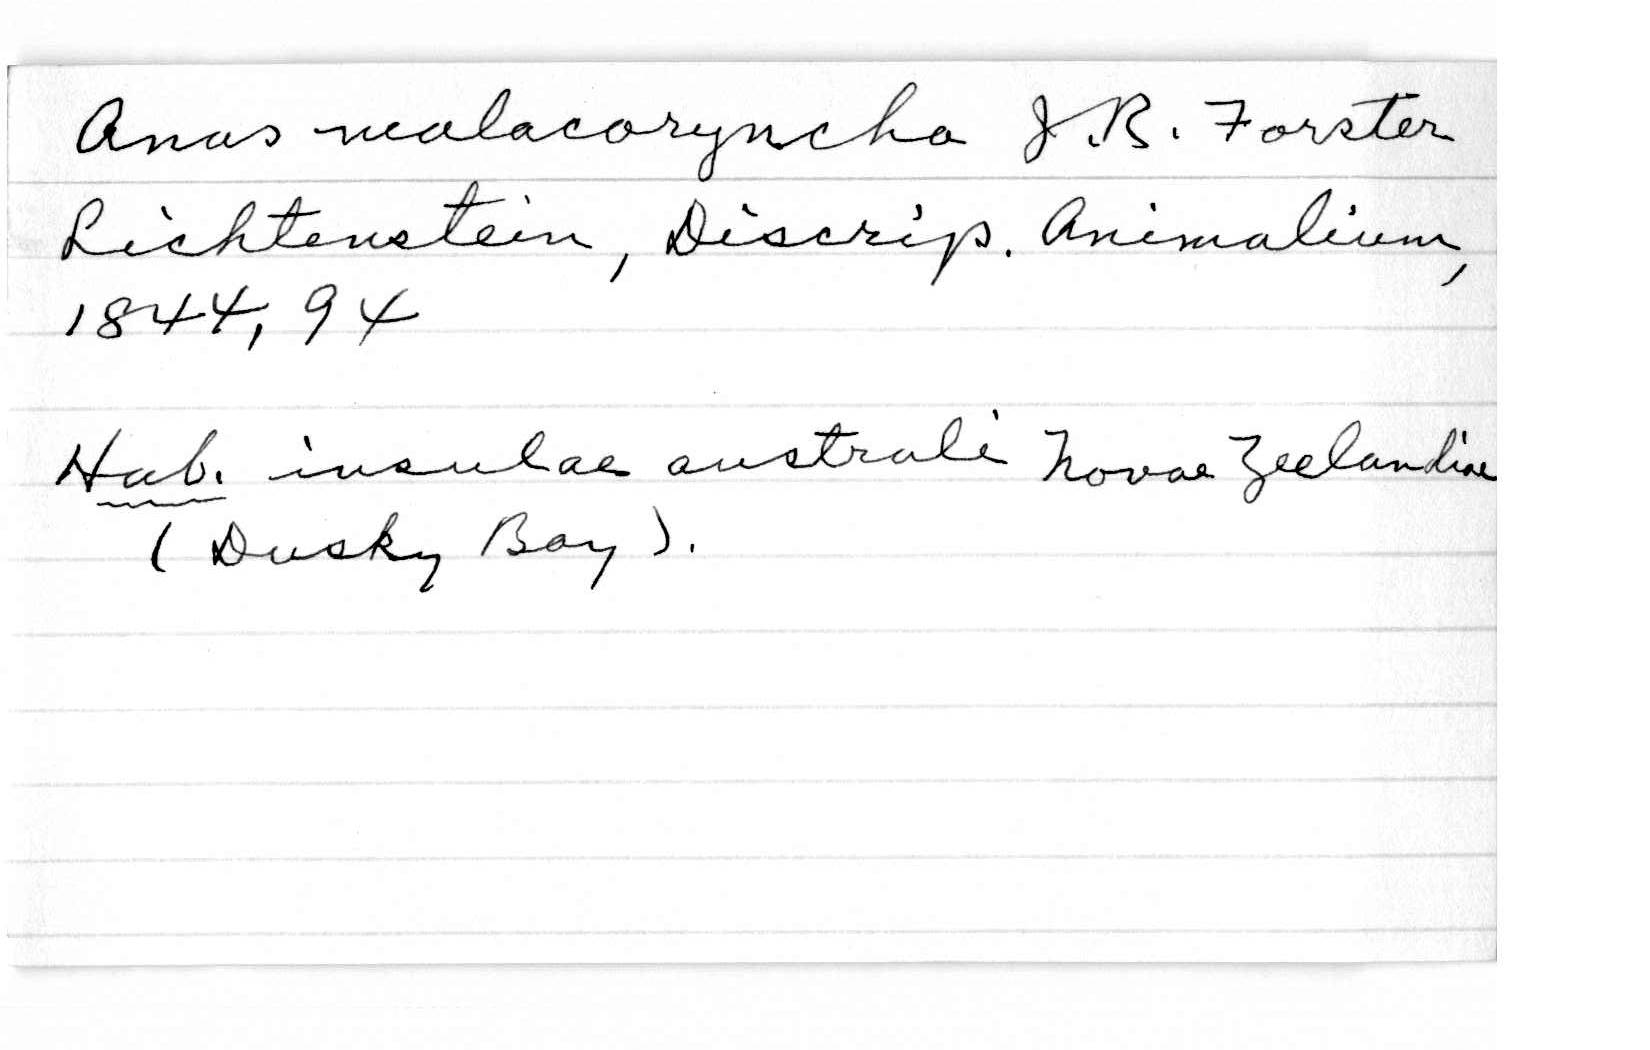 Anas malacoryncha J.R. Forster
Lichtenstein, Discrip. Animalium,
1844, 94
Hab. insulae australi Novae Zeelandiae
(Dusky Bay).